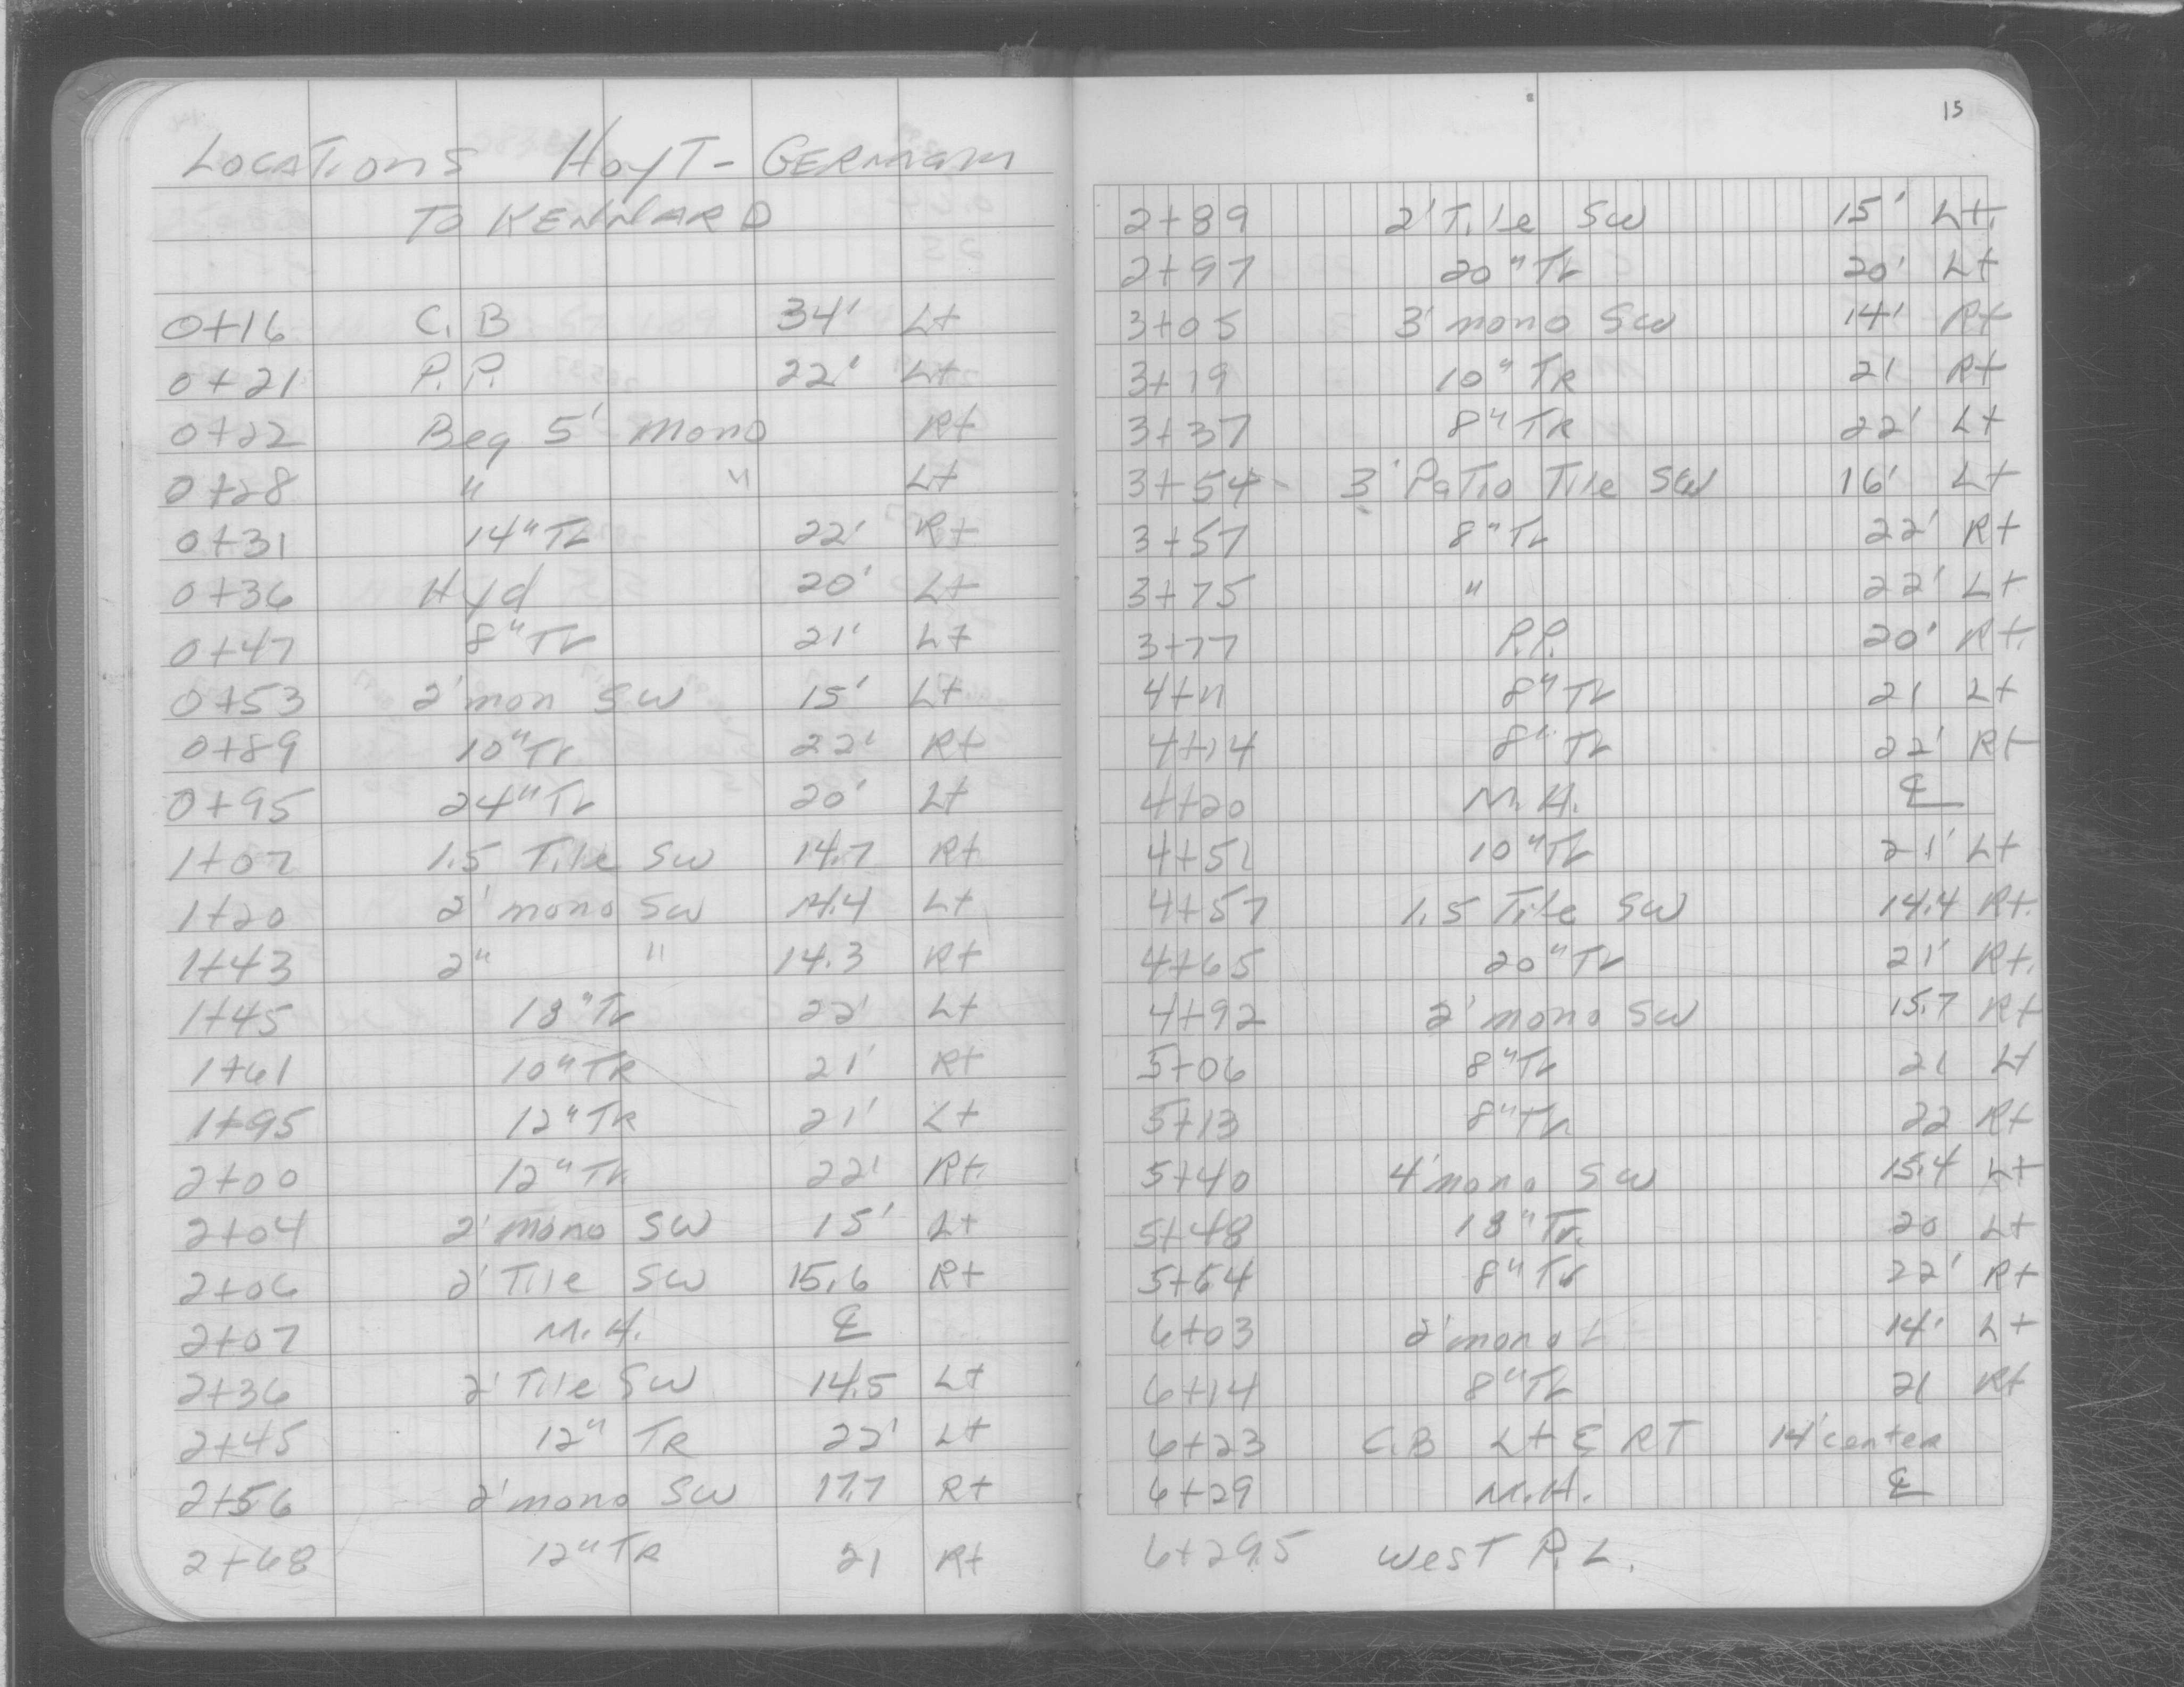 LOCATIONS HOYT - GERMAIN
TO KENNARD
0+16 C.B 34' Lt
0+21 P.P. 22' Lt
0+22 Beg 5' mono Rt
0+28 " " Lt
0+31 14" Tr 22' Rt
0+36 Hyd 20' Lt
0+47 8" Tr 21' Lt
0+53 2' mon SW 15' Lt
0+89 10" Tr 22' Rt
0+95 24" Tr 20' Lt
1+07 1.5 Tile SW 14.7 Rt
1+20 2' mono SW 14.4 Lt
1+43 2" " 14.3 Rt
1+45 18" Tr 22' Lt
1+61 10" TR 21' Rt
1+95 12" TR 21' Lt
2+00 12" TR 22' Rt.
2+04 2' mono SW 15' Lt
2+06 2' Tile SW 15.6 Rt
2+07 M.H. ℄
2+36 2' Tile SW 14.5 Lt
2+45 12" TR 22' Lt
2+56 2' mono SW 17.7 Rt
2+68 12" TR 21 Rt
15
2+89 2' Tile SW 15' Lt.
2+97 20" Tr 20' Lt
3+05 3' mono SW 14' Rt
3+19 10" TR 21 Rt
3+37 8" TR 22' Lt
3+54 3' Patio Tile SW 16' Lt
3+57 8" Tr 22' Rt
3+75 " 22' Lt
3+77 P.P. 20' Rt.
4+11 8" Tr 21 Lt
4+14 8" Tr 22' Rt
4+20 M.H. ℄
4+51 10" Tr 21' Lt
4+57 1.5 Tile SW 14.4 Rt.
4+65 20" Tr 21' Rt.
4+92 2' mono SW 15.7 Rt
5+06 8" Tr 21 Lt
5+13 8" Tr 22 Rt
5+40 4' mono SW 15.4 Lt
5+48 18" Tr. 20 Lt
5+64 8" Tr 22' Rt
6+03 2' mono 14' Lt
6+14 8" Tr 21 Rt
6+23 C.B Lt & RT 14' center
6+29 M.H. ℄
6+29.5 West P.L.